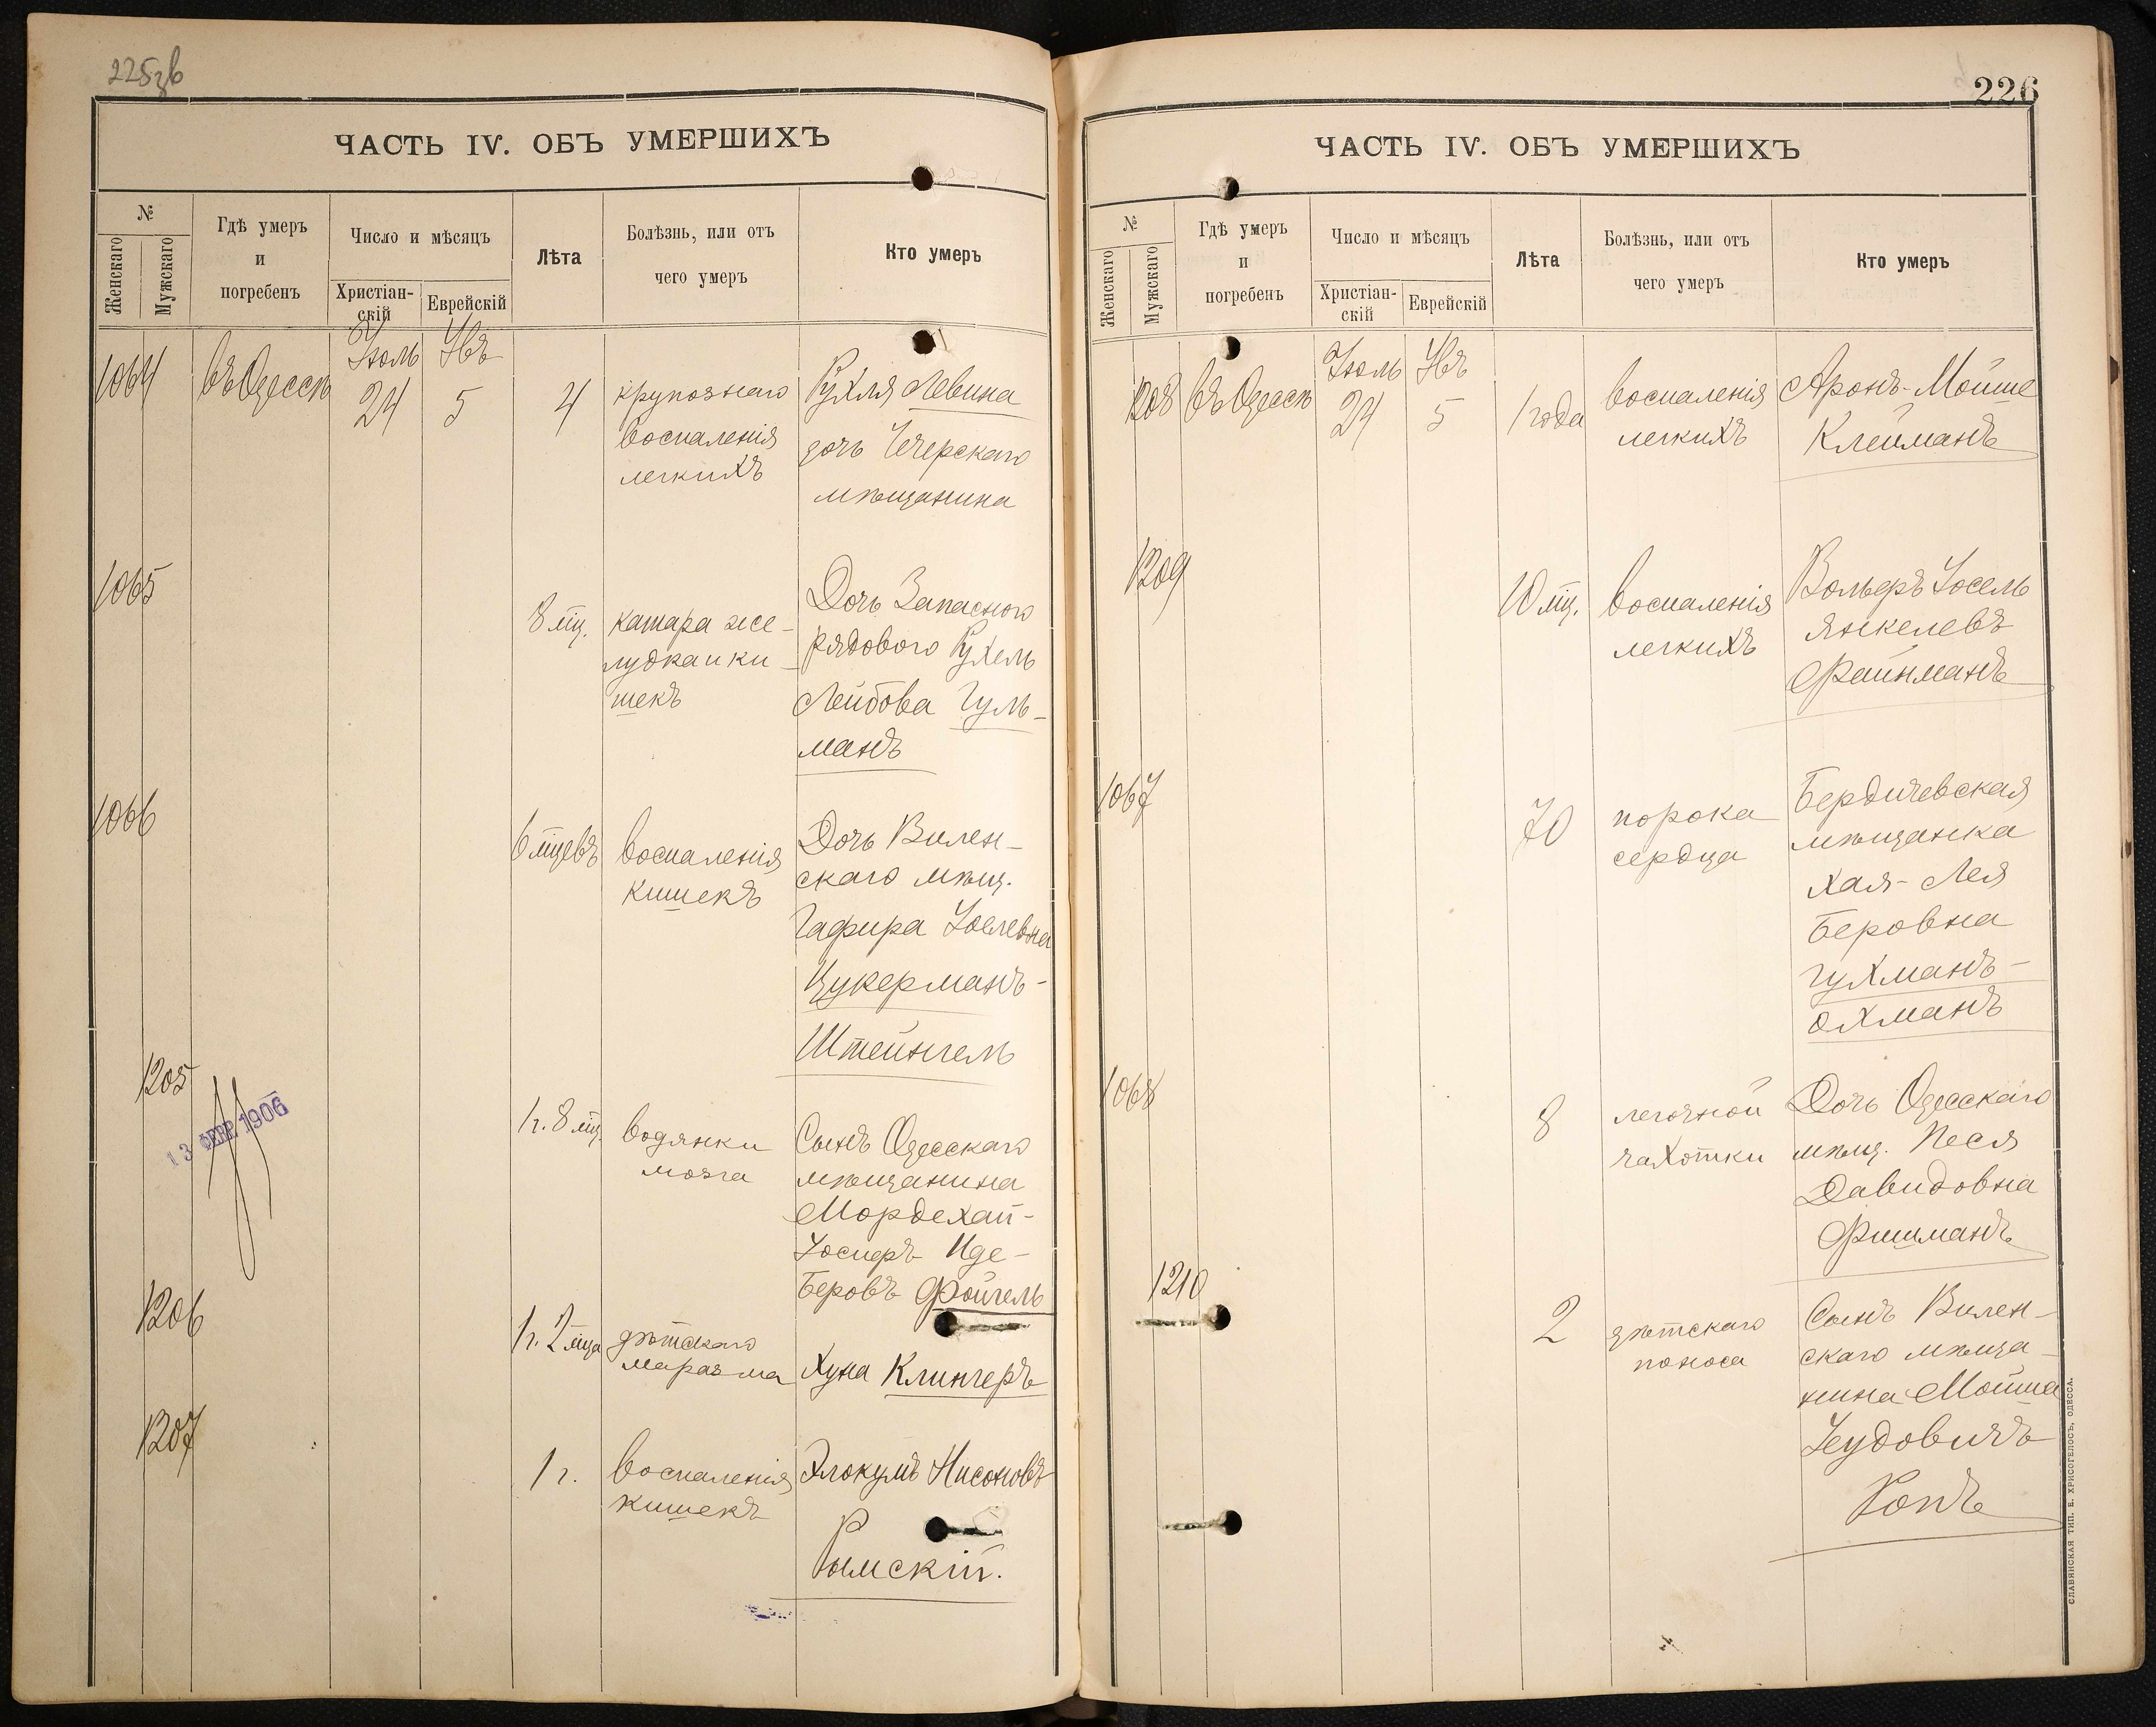 225зв
ЧАСТЬ IV. ОБЪ УМЕРШИХЪ
№
Женскаго
Мужскаго
Гдѣ умеръ
и
погребенъ
Число и мѣсяцъ
Христіан-
скій
Еврейскій
Лѣта
Болѣзнь, или отъ
чего умеръ
Кто умеръ
Іюль Явъ
1064 въ Одессѣ 24 5 4 крупознаго Рухля Левина
воспаленія дочь Чечерскаго
легкихъ мѣщанина
1065
Дочь Запасного
8 мц. катара же- рядового Рухель
лудка и ки- Лейбова Гуль-
шекъ манъ
1066
6 мцевъ воспаленія Дочь Вилен-
кишекъ скаго мѣщ.
Гафира
Цукерманъ-
Штейнгель
1205
13 ФЕВР 1906
1 г. 8 мц. водянки Сынъ Одесскаго
мозга мѣщанина
Мордехай-
Іосифъ Иде-
Беровъ Фойгель
1206
1 г. 2 мца дѣтскаго
маразма Хуна Клингеръ
1207
1 г. воспаленія Элокумъ Нисоновъ
кишекъ
Рымскій.
226
ЧАСТЬ IV. ОБЪ УМЕРШИХЪ
№
Женскаго
Мужскаго
Гдѣ умеръ
и
погребенъ
Число и мѣсяцъ
Христіан-
скій
Еврейскій
Лѣта
Болѣзнь, или отъ
чего умеръ
Кто умеръ
Іюль Явъ
1208 въ Одессѣ 24 5 1 года воспаленія Аронъ-Мойше
легкихъ Клейманъ
1209
10 мц. воспаленія Вольфъ Іосель
легкихъ Янкелевъ
Файнманъ
1067
70 порока Бердичевская
сердца мѣщанка
Хая-Лея
Беровна
Гухманъ-
Охманъ
1068
8 легочной Дочь Одесскаго
чахотки мѣщ. Песя
Давидовна
Фишманъ
1210
2 дѣтскаго Сынъ Вилен-
поноса скаго мѣща-
нина Мойша
Іеудовичъ
Копъ
СЛАВЯНСКАЯ ТИП. Е. ХРИСОГЕЛОСЪ, ОДЕССА.